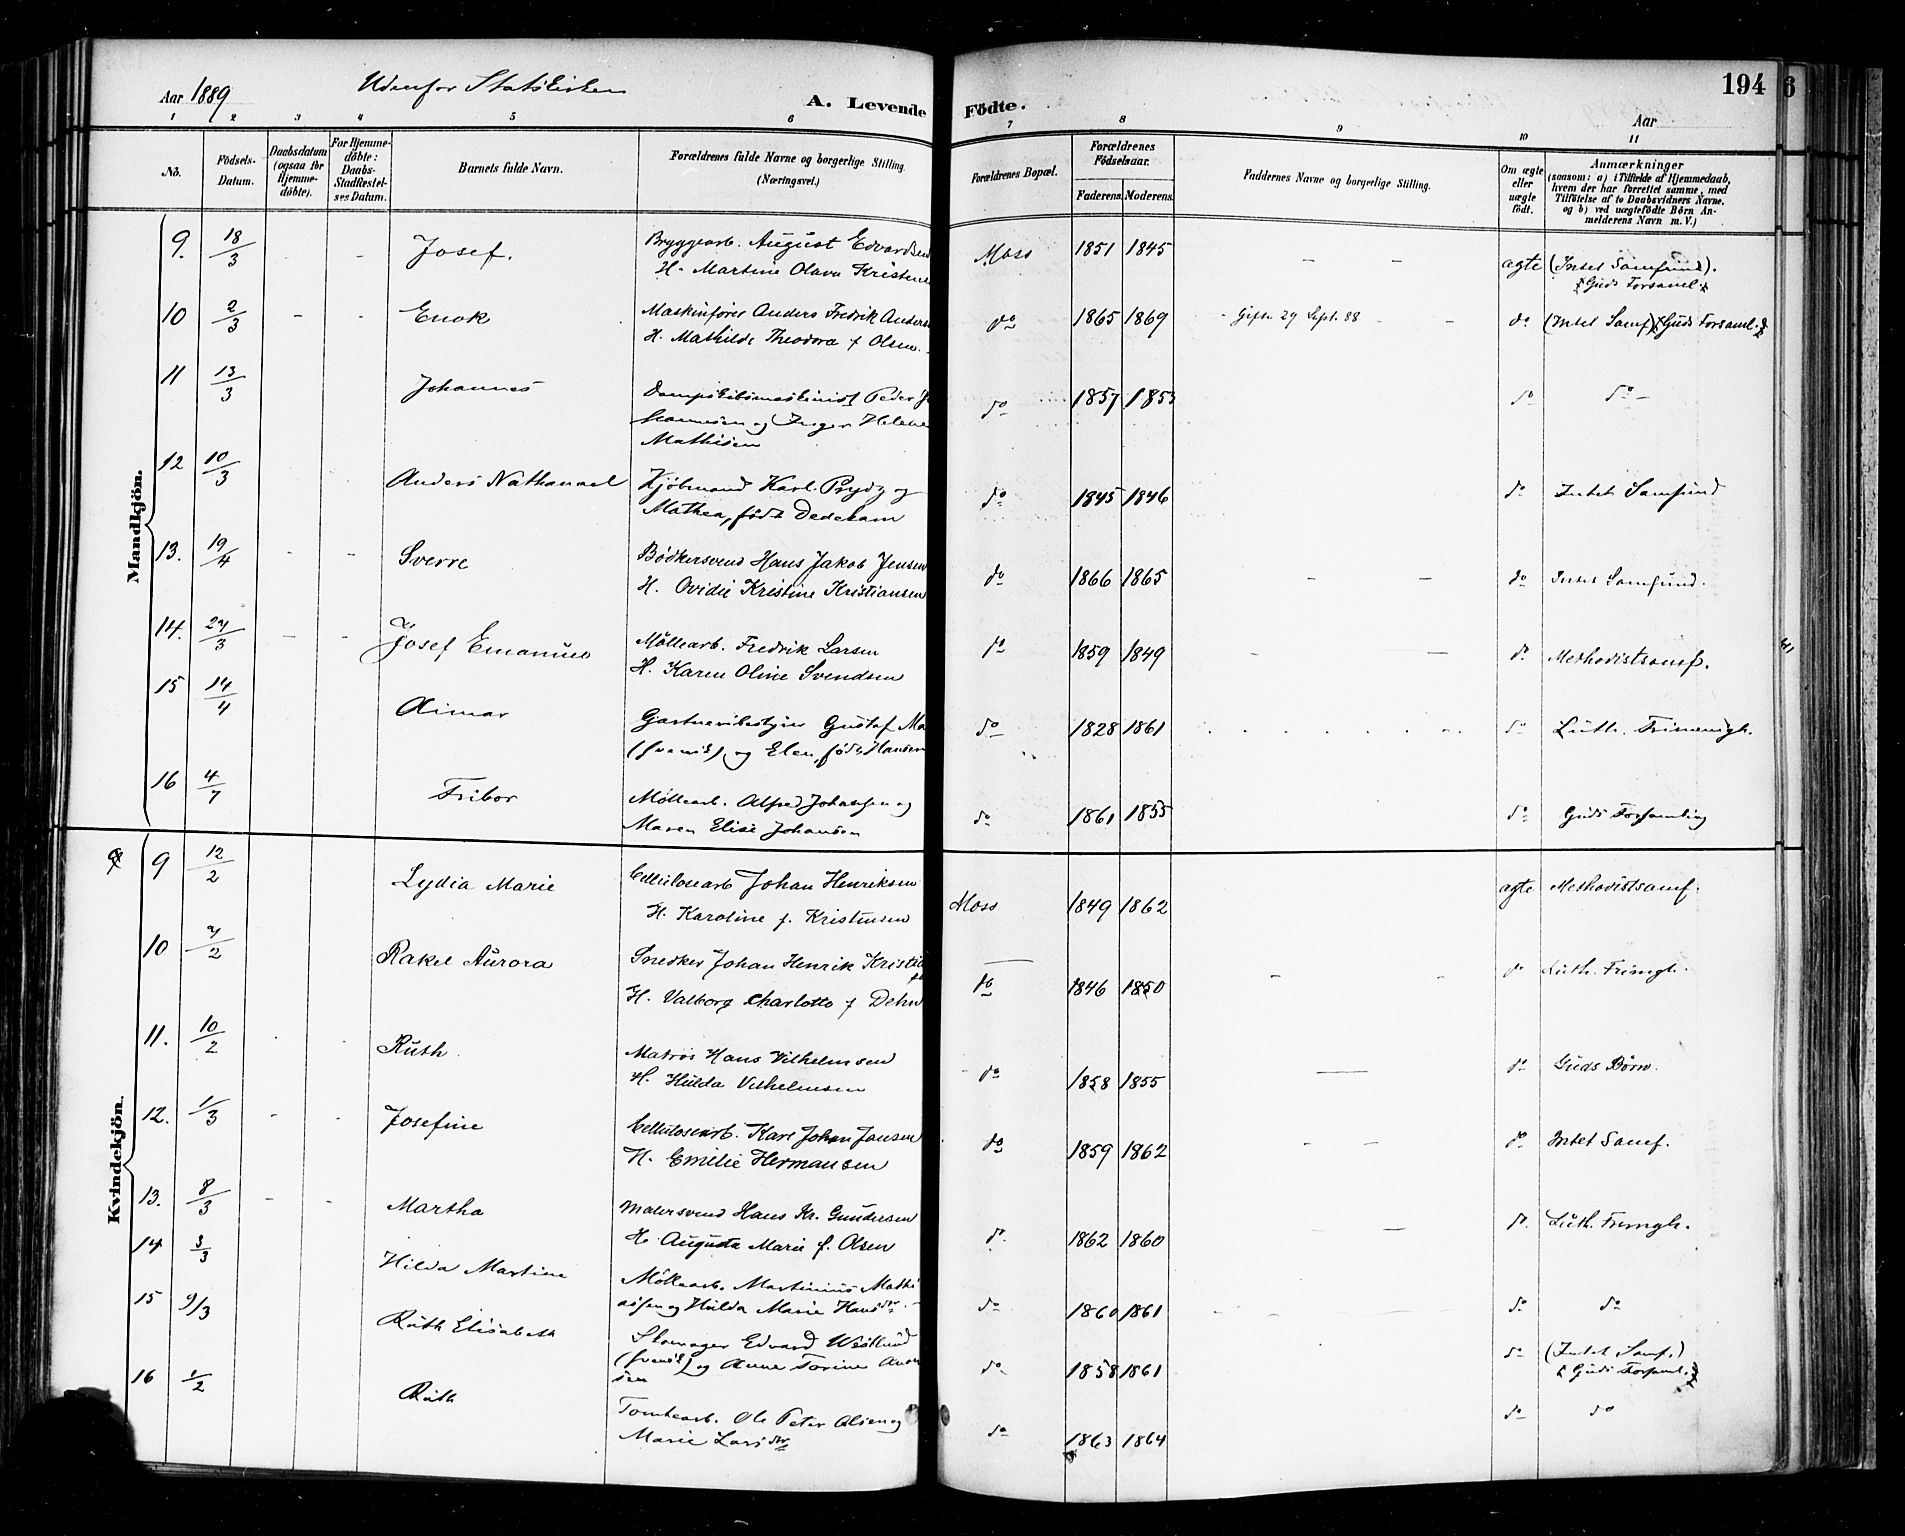 Aar 1889 Udenfor Statskirken A. Levende Födte. 194 6
Aar
1 2 3 4 5 6 7 8 9 10 11
No. Födsels-Datum. Daabsdatum (ogsaa for Hjemme-döbte). For Hjemme-döbte: Daabs-Stadfæstel-ses Datum. Barnets fulde Navn. Forældrenes fulde Navne og borgerlige Stilling. (Næringsvei.) Forældrenes Bopæl. Forældrenes Födselsaar. Faderens. Moderens. Faddernes Navne og borgerlige Stilling. Om ægte eller uægte födt. Anmærkninger (saasom: a) i Tilfælde af Hjemmedaab, hvem der har forrettet samme, med Tilföielse af to Daabsvidners Navne, og b) ved uægtefödte Börn An-melderens Navn m. V.)
Mandkjön.
9. 18/3 - - Josef. Bryggearb. August Edvardsen Moss 1851 1845 - - ægte (Intet Samfund).
H. Martine Olava Kristens Guds Forsaml.
10 2/3 - - Enok Maskinfører Anders Fredrik Anders do 1865 1869 - Gift 29 Sept. 88 - - do (Intet Samf) Guds Forsaml.
H. Mathilde Theodora f Olsen.
11 13/3 Johannes Dampskibsmaskinist Peder Jo do 1857 1853 do do -
hannesen og Inger Helene
Mathisen
12 10/3 Anders Nathanael Kjøbmand Karl Prydz og do 1845 1846 do Intet Samfund
Mathea, født Dedekam
13. 19/4 - - Sverre Bødkersvend Hans Jakob Jensen do 1866 1865 - - do Intet Samfund.
H. Ovidie Kristine Kristiansen
14. 27/3 - - Josef Emanuel Møllearb. Fredrik Larsen do 1859 1849 - - do Methodistsamf.
H. Karen Oline Svendsen
15 14/4 Aimar Gartneribestyrer Gustaf Ma do 1828 1861 do Luth. Frimengh.
(svensk) og Elen, født Hansen
16 4/7 Fribor Møllearb. Alfred Johansen og do 1861 1855 do Guds Forsamling
Maren Elise Johansen
Kvindekjön.
9 12/2 Lydia Marie Cellulosearb Johan Henriksen Moss 1849 1862 ægte Methodistsamf.
H. Karoline f. Kristensen
10 7/2 Rakel Aurora Snedker Johan Henrik Kristia do 1846 1850 - - do Luth. Frimgh.
H. Valborg Charlotte f Dehn
11. 10/2 Ruth Matros Hans Vilhelmsen do 1858 1855 - do Guds Børn.
H. Hulda Vilhelmsen
12. 1/3 - - Josefine Cellulosearb. Karl Johan Jansen do 1859 1862 - - do Intet Samf.
H. Emilie Hermansen
13. 8/3 - - Martha Malersvend Hans Kr. Gundersen do 1862 1860 - - do Luth. Frimgh.
H. Augusta Marie f. Olsen
14 3/3 Hilda Martine Møllearb. Martinius Mathi do 1860 1861 do do
asen og Hulda Marie Hansdr.
15 9/3 Ruth Elisabeth Skomager Edvard Westlund do 1858 1861 do (Intet Samf.)
(svensk) og Anne Torine Ander Guds Forsaml.
sen
16 1/2 Ruth Tomtearb. Ole Peter Olsen og do 1863 1864 do do
Marie Larsdtr